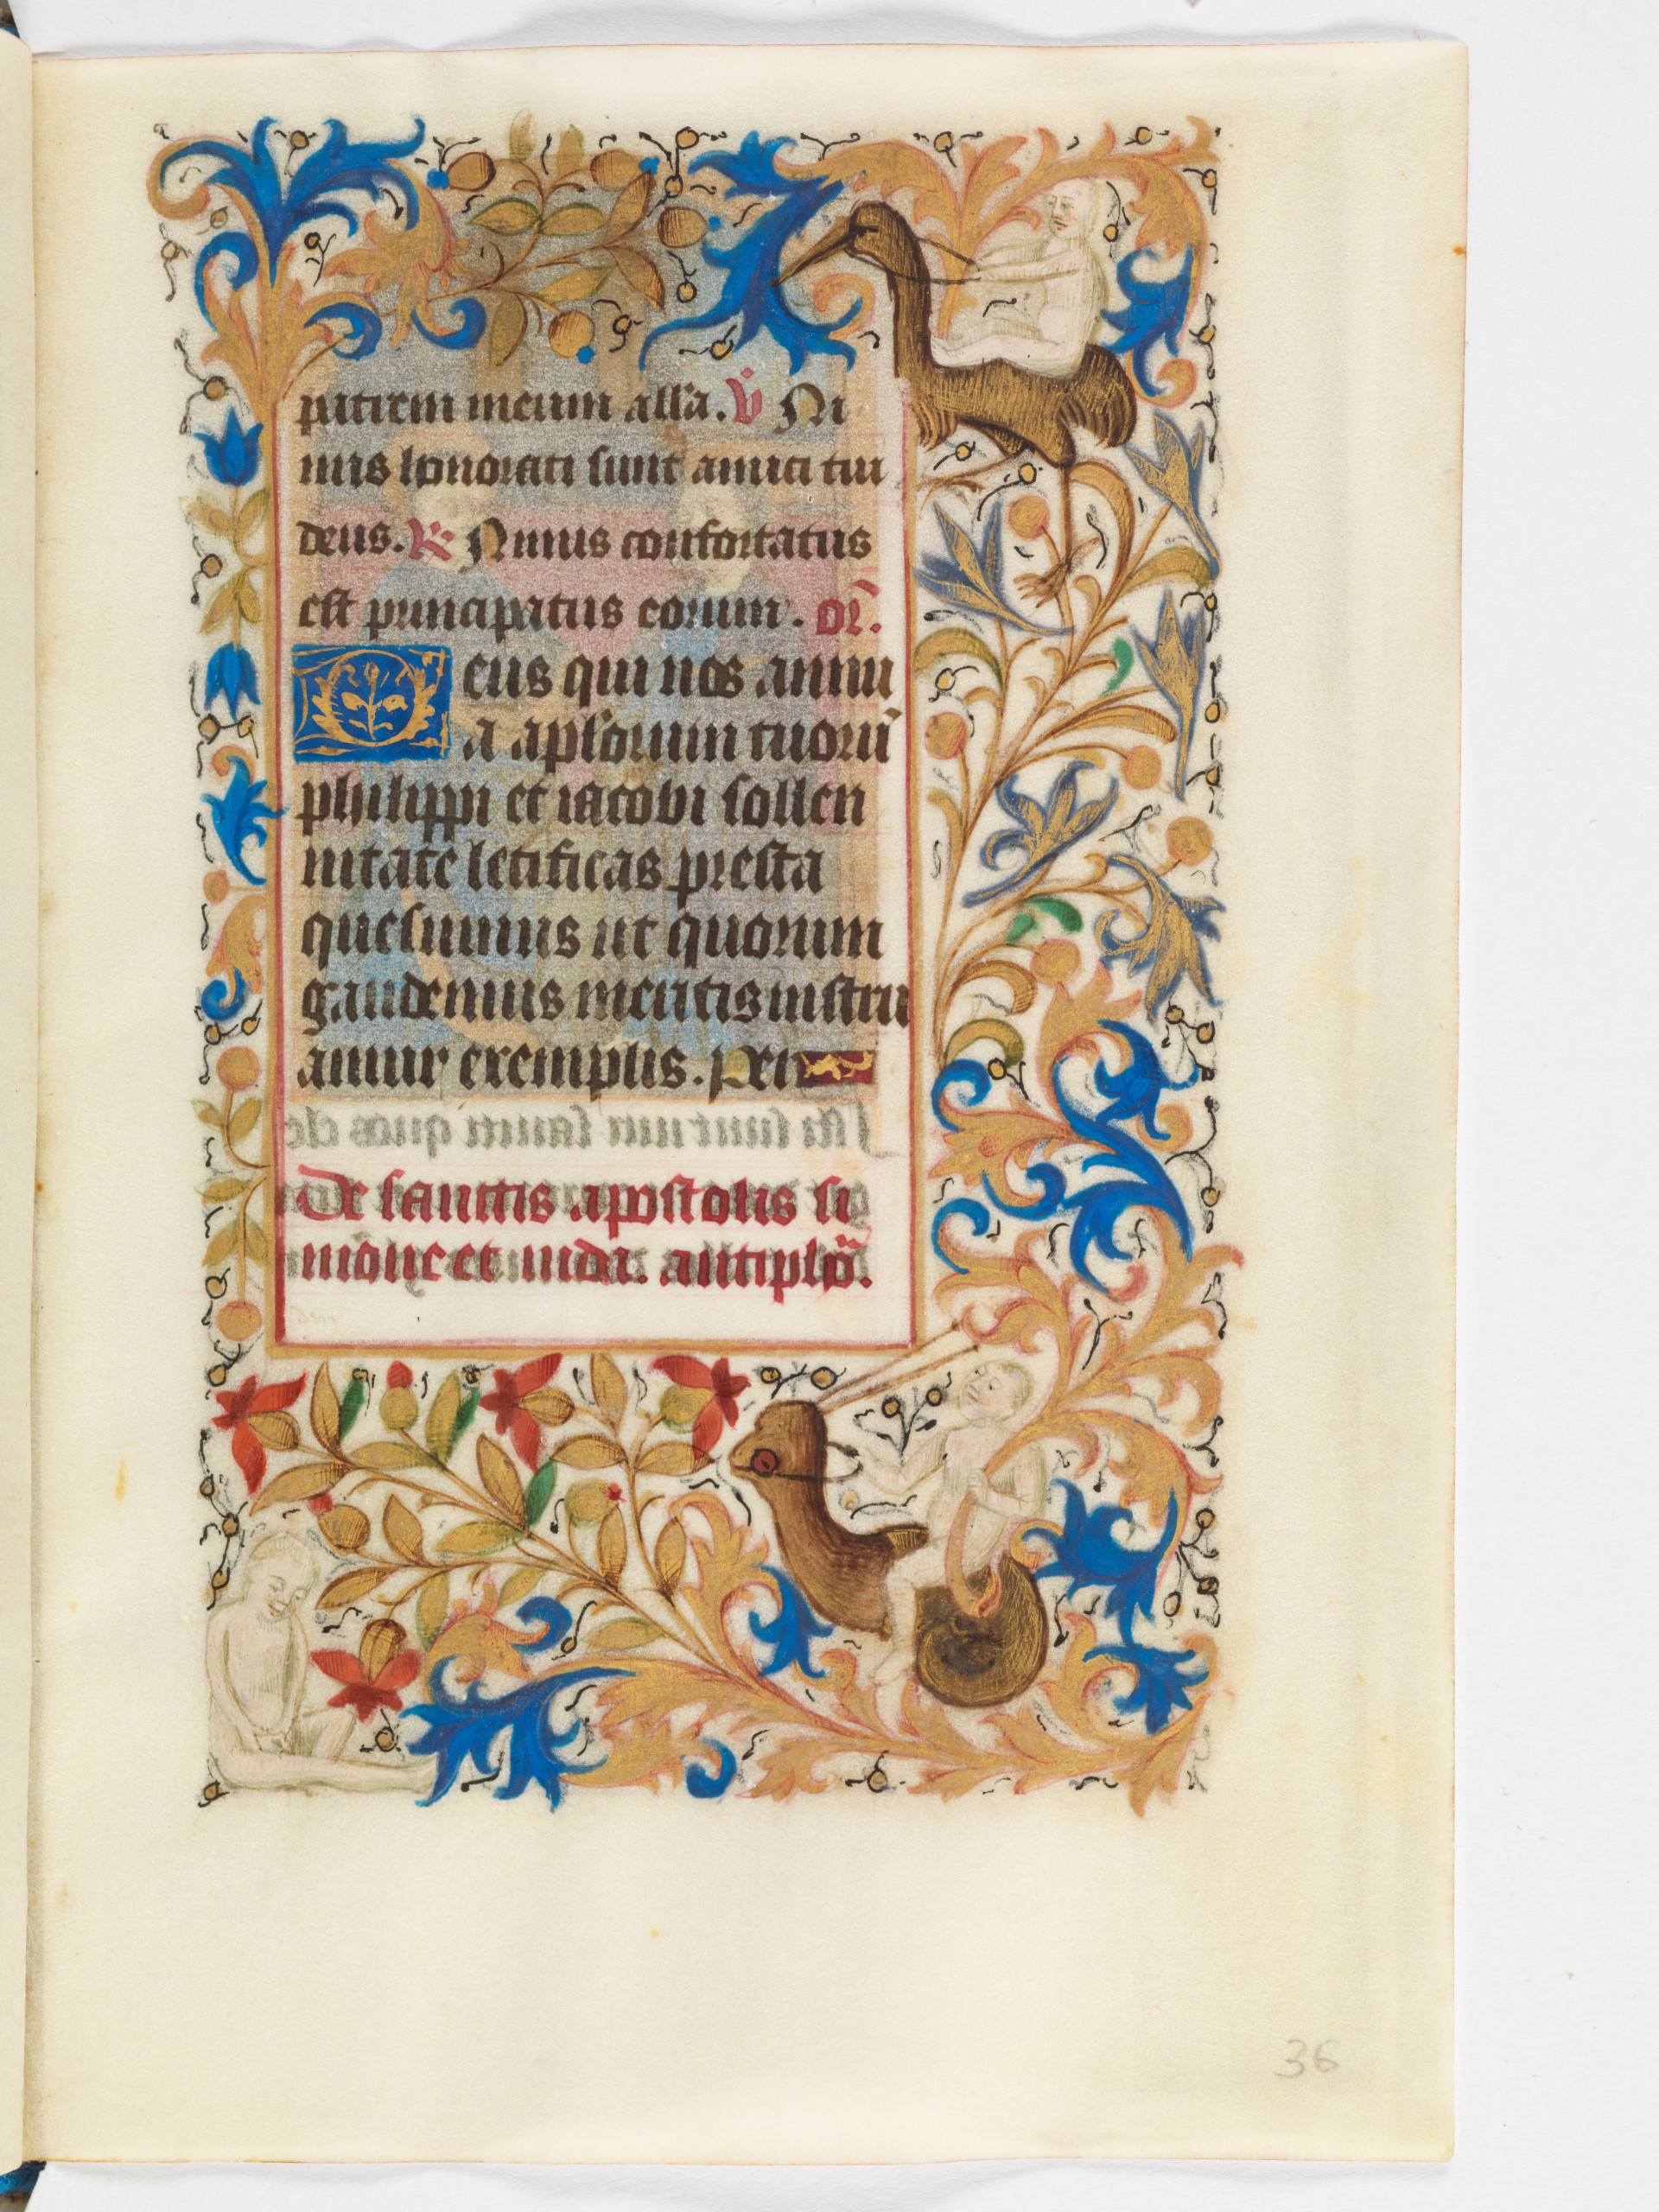 patrem meum all'a. v̇ Ni
mis honorati sunt amici tui
deus. R Nimis confortatus
est principatus eorum. or̄.
Deus qui nos annu
a ap'lorum tuorū
philippi et iacobi sollen
nitate letificas presta
quesumus ut quorum
gaudemus meritis instru
amur exemplis. Per
De sanctis apostolis si
mone et iuda. antiphō.
36